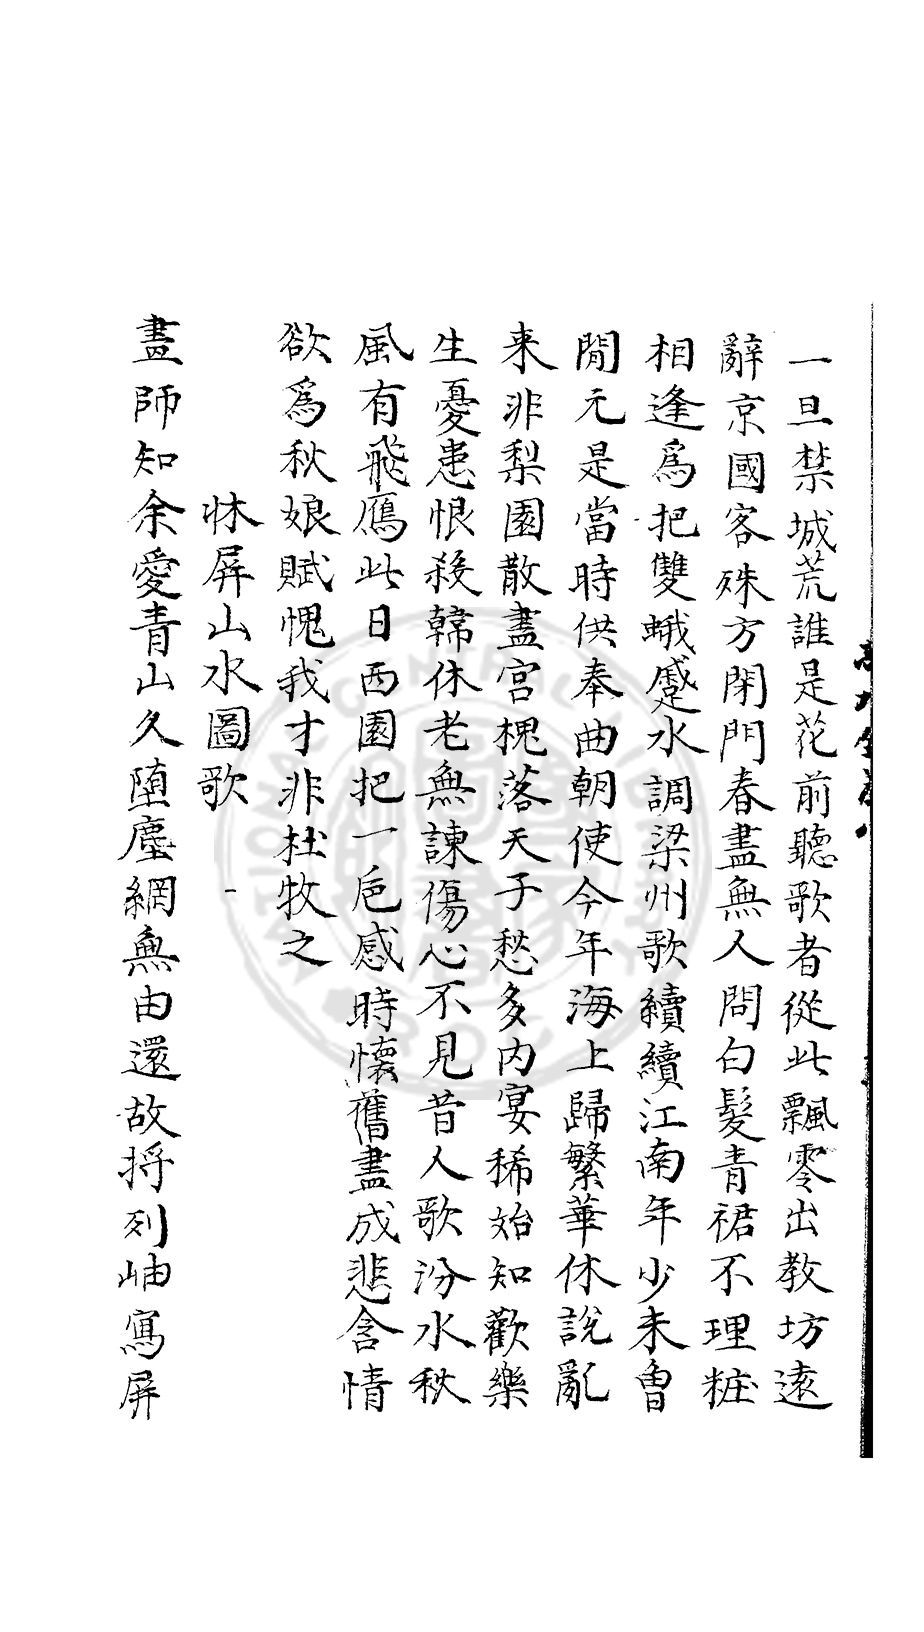 一旦禁城荒誰是花前聽歌者從此飄零出教坊遠
辭京國客殊方閉門春盡無人問白髮青裙不理粧
相逢為把雙蛾蹙水調梁州歌續續江南年少未曾
聞元是當時供奉曲朝使今年海上歸繁華休說亂
来非梨園散盡宮槐落天子愁多内宴稀始知歡樂
生憂患恨殺韓休老無諫傷心不見昔人歌汾水秋
風有飛鴈此日西園把一巵感時懷舊盡成悲含情
欲為秋娘賦愧我才非杜牧之
牀屏山水圖歌
畫師知余愛青山久墮塵網無由還故将列岫寫屏